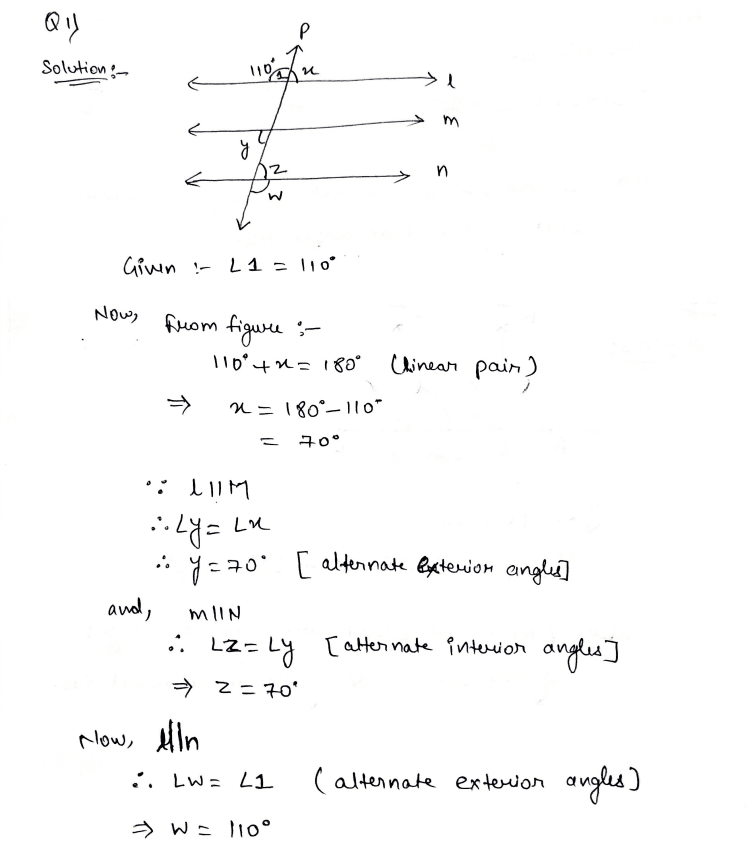 Q1)
Solution :-
P
110° 1 x
l
m
y
z
n
w
Given :- ∠1 = 110°
Now, From figure :-
110° + x = 180° (linear pair)
⇒ x = 180° - 110°
= 70°
∵ l || M
∴ ∠y = ∠x
∴ y = 70° [alternate exterior angles]
and, m || N
∴ ∠z = ∠y [alternate interior angles]
⇒ z = 70°
Now, l || n
∴ ∠w = ∠1 (alternate exterior angles]
⇒ w = 110°